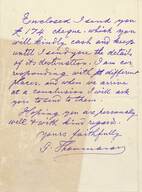 Enclosed I send you
A 174 cheque, which you
will kindly cash and keep
until I send you the details
of its destination. I am cor
responding with different
places, and when we arrive
at a conclusion I will ask
you to send to them.
Hoping you are personally
well, with kind regard.
yours faithfully.